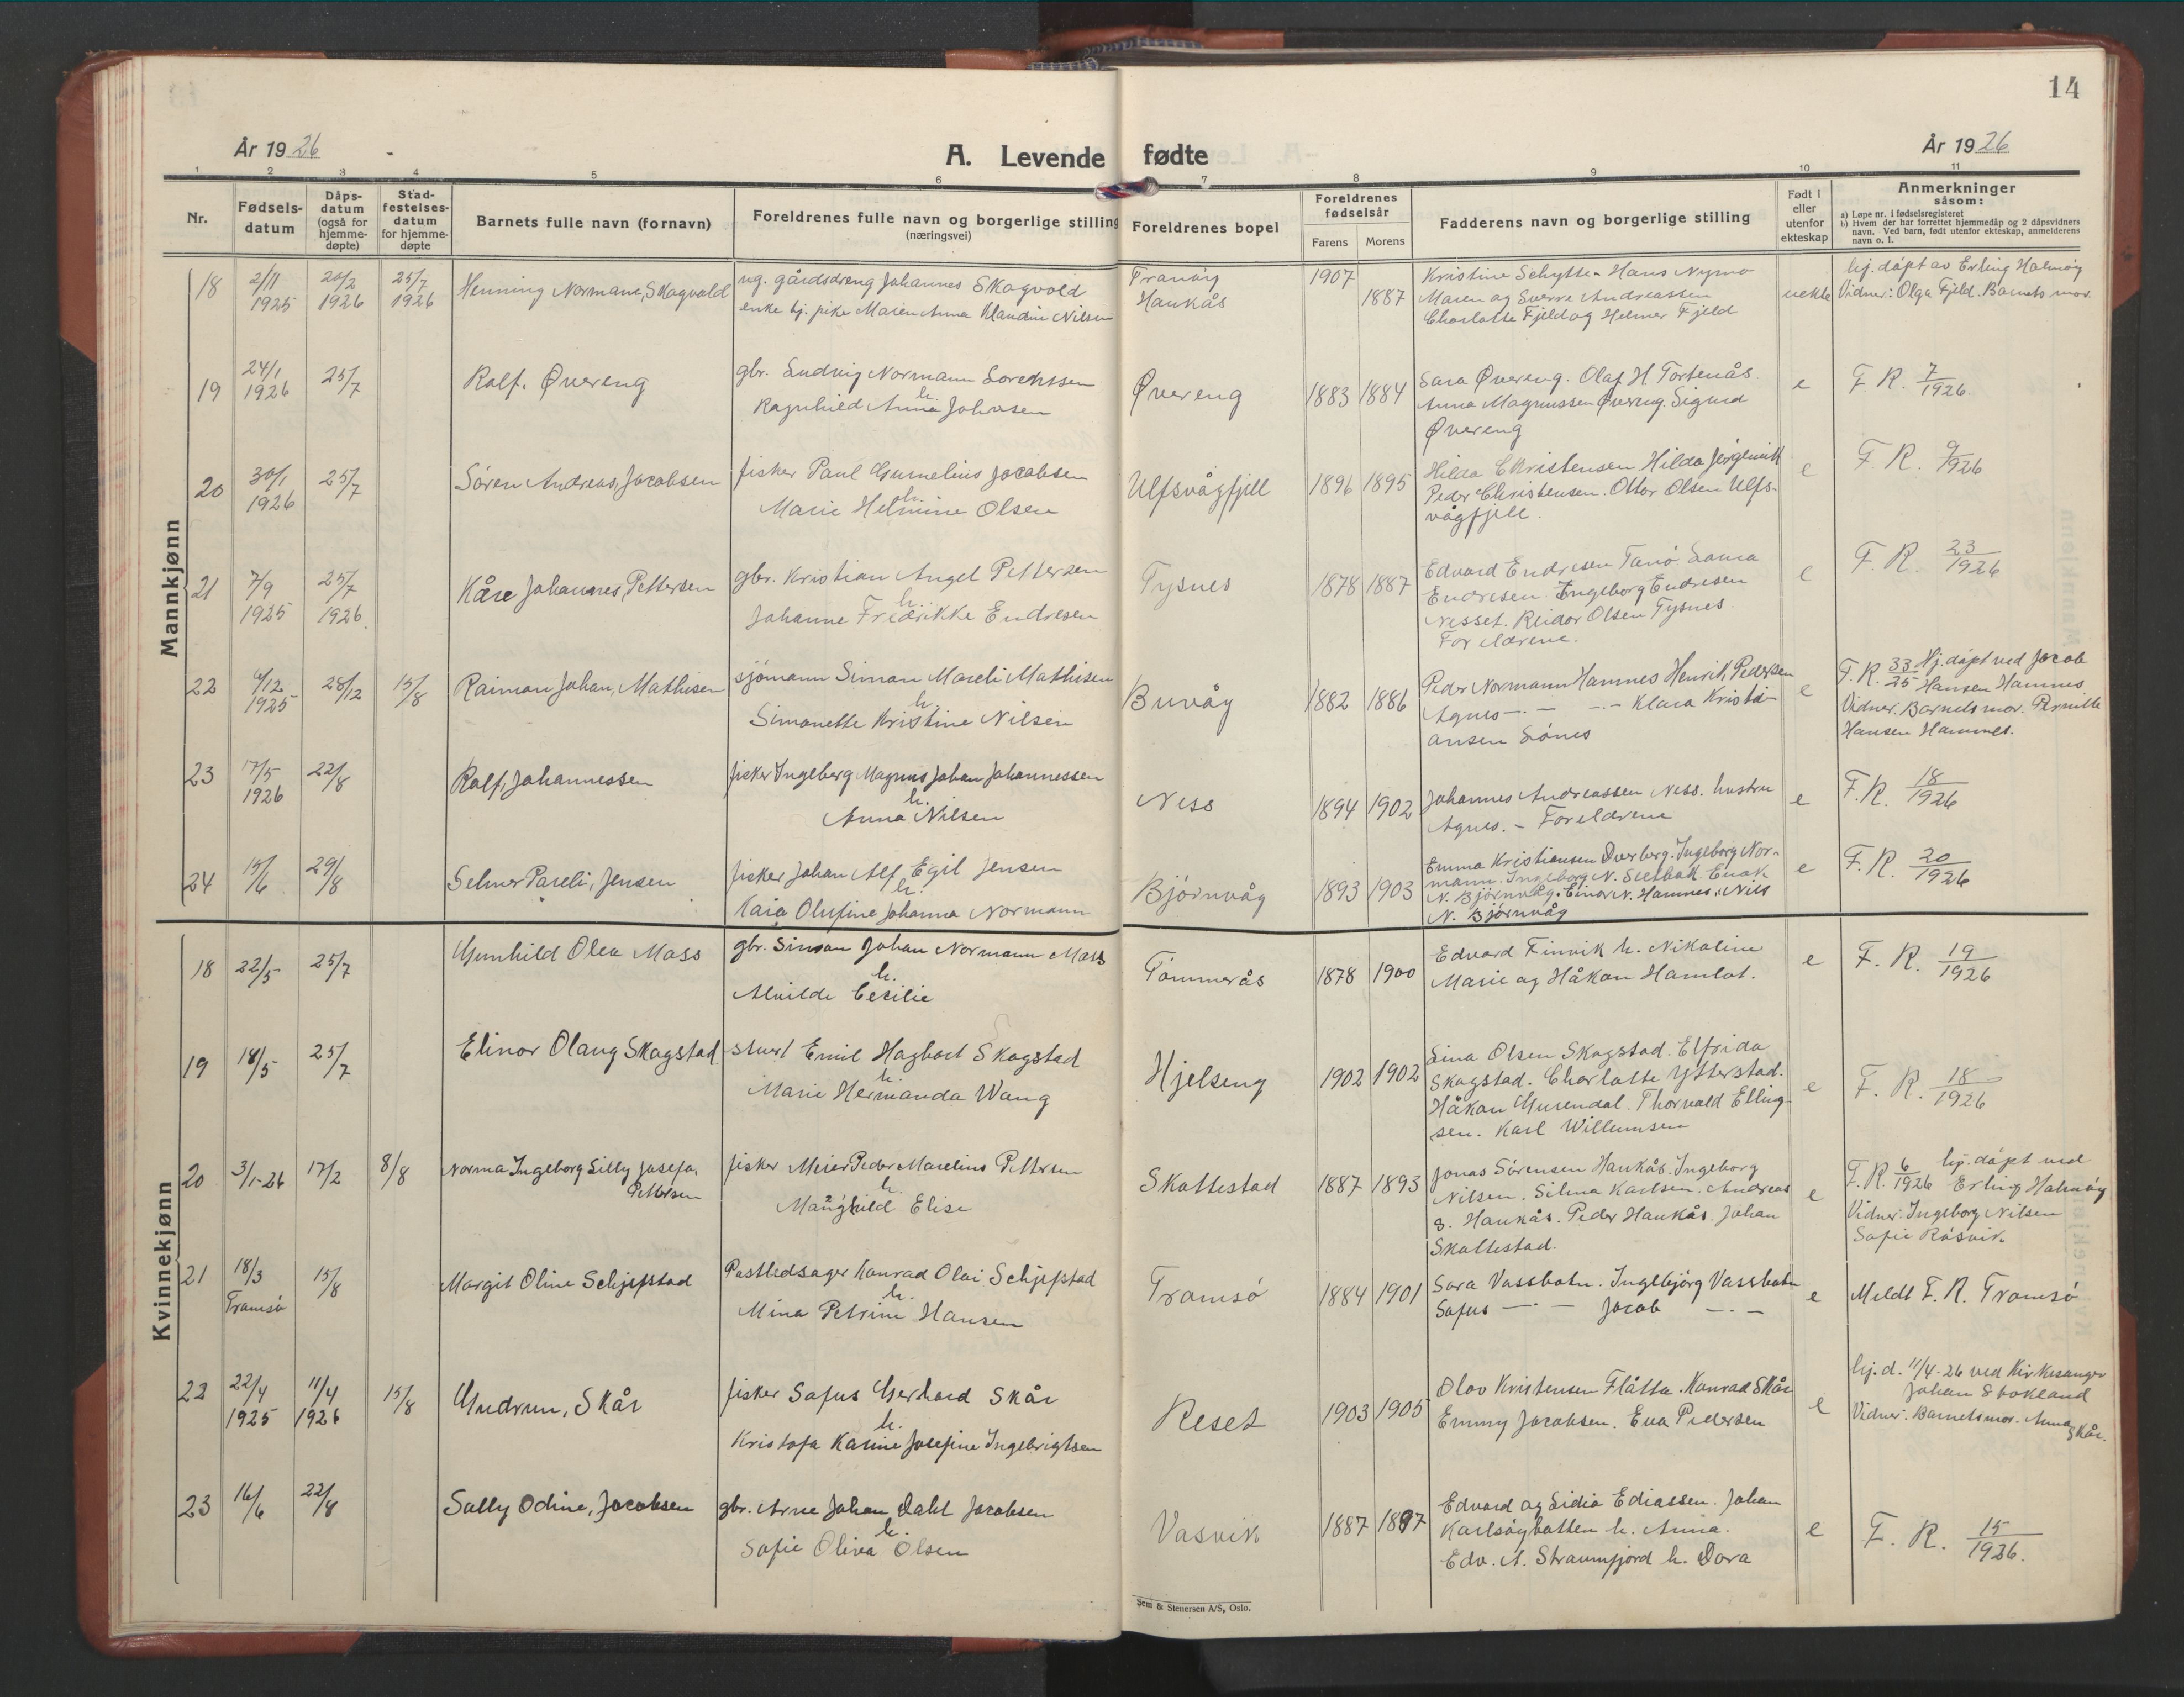 14
År 1926
A. Levende fødte
År 1926
1 2 3 4 5 6 7 8 9 10 11
Nr.
Fødsels-
datum
Dåps-
datum
(også for
hjemme-
døpte)
Stad-
festelses-
datum
for hjemme-
døpte
Barnets fulle navn (fornavn)
Foreldrenes fulle navn og borgerlige stilling
(næringsvei)
Foreldrenes bopel
Foreldrenes
fødselsår
Farens Morens
Fadderens navn og borgerlige stilling
Født i
eller
utenfor
ekteskap
Anmerkninger
såsom:
a) Løpe nr. i fødselsregisteret
b) Hvem der har forrettet hjemmedåp og 2 dåpsvidners
navn. Ved barn, født utenfor ekteskap, anmelderens
navn o. l.
Mannkjønn
18 2/11 1925 20/2 1926 25/7 1926
Henning Normann, Skogvold
ug. gårdsdreng Johannes Skogvold
enke hj. pike Maren Anna Klaudine Nilsen
Tranøy
Haukås
1907
1887
Kristine Schytte. Hans Nymo
Maren og Sverre Andreassen
Charlotte Fjeld og Helmer Fjeld
uekte
hj. døpt av Erling Halmøy
Vidner: Olga Fjeld. Barnets mor.
19 24/1 1926 25/7
Ralf. Øvereng
gbr. Ludvig Normann Lorentssen
h.
Ragnhild Anna Johnsen
Øvereng
1883 1884
Sara Øvereng. Olaf H. Tortenås.
Anna Magnussen Øvereng. Sigurd
Øvereng
e
F. R. 7/1926
20 30/1 1926 25/7
Søren Andreas, Jacobsen
fisker Paul Gurnelius Jacobsen
h.
Marie Helmine Olsen
Ulfsvågfjell
1896 1895
Hilda Christensen. Hilda
Peder Christensen. Ottar Olsen Ulfs-
vågfjell.
e
F. R. 9/1926
21 7/9 1925 25/7 1926.
Kåre Johannes, Pettersen
gbr. Kristian Angel Pettersen
h.
Johanne Fredrikke Endresen
Tysnes
1878 1887
Edvard Endresen Tanø Laura
Endresen Ingeborg Endresen
Nesset. Reidar Olsen Tysnes.
Foreldrene.
e
F. R. 23/1926
22 4/12 1925 28/12 15/8
Raimon Johan, Mathisen
sjømann Simon Mareli Mathisen
h.
Simonette Kristine Nilsen
Buvåg
1882 1886
Peder Normann Hamnes Henrik Pedersen
Agnes —·— —·— Klara Kristi-
ansen Lónes
e
F. R. 33/25 Hj. døpt ved Jacob
Hansen Hamnes.
Vidner. Barnets mor. Pernille
Hansen Hamnes.
23 17/5 1926 22/8
Ralf, Johannessen
fisker Ingeberg Magnus Johan Johannessen
h.
Anna Nilsen
Ness
1894 1902
Johannes Andreassen Ness. hustru
Agnes. – Foreldrene
e
F. R. 18/1926
24 15/6 29/8
Selmer Pareli, Jensen
fisker Johan Alf Egil Jensen
h.
Kaia Olufine Johanna Normann
Bjørnvåg
1893 1903
Emma Kristiansen Overberg. Ingeborg Nor-
mann. Ingeborg N. Enok
N. Bjørnvåg. Einar N. Hamnes. Nils
N. Bjørnvåg
e
F. R. 20/1926
Kvinnekjønn
18 22/5 25/7
Gunhild Olea Moss
gbr. Simon Johan Normann Moss
h.
Alvilde Cecilie
Tømmerås
1878 1900
Edvard Finvik h. Nikoline
Marie og Håkon Hamlot.
e
F. R. 19/1926
19 18/5 25/7
Elinor Olaug Skogstad
stuert Emil Hagbart Skogstad
h.
Marie Hermanda Wang
Hjelseng
1902 1902
Lina Olsen Skogstad. Elfrida
Skogstad. Charlotte Ytterstad.
Håkon Gurendal. Thorvald Elling-
sen. Karl Willumsen
e
F. R. 18/1926
20 3/1-26 17/2 8/8
Norma Ingeborg Silly Josefa,
Pettersen
fisker Meier Peder Marelius Pettersen
h.
Manghild Elise
Skattestad
1887 1893
Jonas Sørensen Haukås. Ingeborg
Nilsen. Silma Karlsen. Andreas
S. Haukås. Peder Haukås. Johan
Skattestad.
e
F. R. 6/1926 hj. døpt ved
Erling Halmøy
Vidner: Ingeborg Nilsen
Sofie Røsvik
21 18/3 Tromsø 15/8
Margit Oline Schjefstad
Postledsager Konrad Olai Schjefstad
h.
Mina Petrine Hansen
Tromsø
1884 1901
Sara Vassbotn. Ingebjørg Vassbotn
Sofus —·— Jacob —·—
e
Meldt F. R. Tromsø
22 22/4 1925 11/4 1926 15/8
Gudrun, Skår
fisker Sofus Gerhard Skår
h.
Kristofa Karine Josefine Ingebrigtsen
Reset
1903 1905
Olav Kristensen Flåtta. Konrad Skår
Emmy Jacobsen. Eva Pedersen
e
hj. d. 11/4-26 ved Kirkesanger
Johan Stokland
Vidner: Barnets mor. Anna
Skår.
23 16/6 22/8
Solly Odine, Jacobsen
gbr. Arne Johan Dahl Jacobsen
h.
Sofie Oliva Olsen
Vasvik
1887 1897
Edvard og Lidia Ediassen. Johan
Karlsøybotten h. Anna.
Edv. A. Straumfjord h. Dora
e
F. R. 15/1926.
Sem & Stenersen A/S, Oslo.